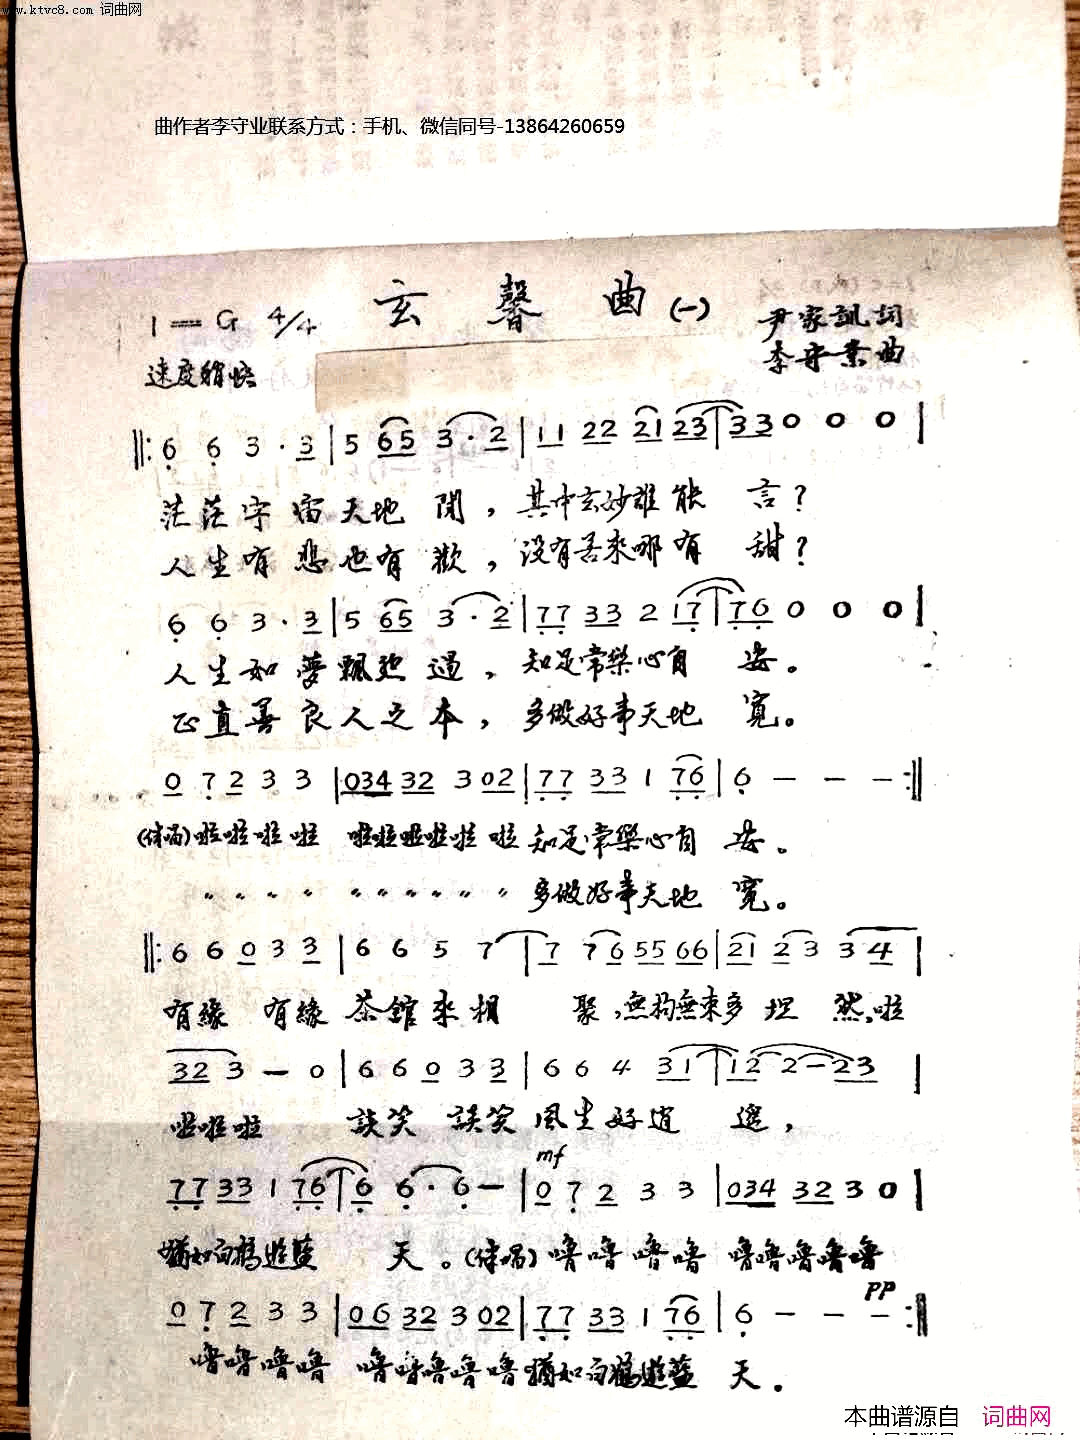 www.ktvc8.com 词曲网
曲作者李守业联系方式：手机、微信同号-13864260659
玄馨曲(一)
1=G 4/4
尹家訊詞
李守業曲
速度稍快
‖: 6̣ 6̣ 3 · 3 | 5 65 3 · 2 | 11 22 21 23 | 33 0 0 0 |
茫茫宇宙天地間，其中玄妙誰能言？
人生有悲也有歡，没有苦來哪有甜？
6̣ 6̣ 3 · 3 | 5 65 3 · 2 | 7̣7̣ 33 2 17̣ | 7̣6̣ 0 0 0 |
人生如夢飄然過，知足常樂心自安。
正直善良人之本，多做好事天地寬。
0 7̣ 2 3 3 | 034 32 3 02 | 7̣7̣ 33 1 7̣6̣ | 6̣ — — — :‖
(伴唱)啦啦啦啦 啦啦啦啦啦啦知足常樂心自安。
〃 〃 〃 〃 〃 〃 〃 〃 〃 〃 多做好事天地寬。
‖: 6 6 0 3 3 | 6 6 5 7 | 7 76 55 66 | 21 23 34 |
有緣 有緣 茶館來相聚，無拘無束多坦然，啦
32 3 — 0 | 6 6 0 3 3 | 6 6 4 31 | 12 2 — 23 |
啦啦啦 談笑 談笑 風生好逍遥，
mf
7̣7̣ 33 1 7̣6̣ | 6̣ 6̣ · 6̣ — | 0 7̣ 2 3 3 | 034 32 3 0 |
猶如白鶴遊藍天。(伴唱)嚕嚕嚕嚕 嚕嚕嚕嚕嚕
PP
0 7̣ 2 3 3 | 06 32 3 02 | 7̣7̣ 33 1 7̣6̣ | 6̣ — — — :‖
嚕嚕嚕嚕 嚕嚕嚕嚕嚕嚕猶如白鶴遊藍天。
本曲谱源自 词曲网